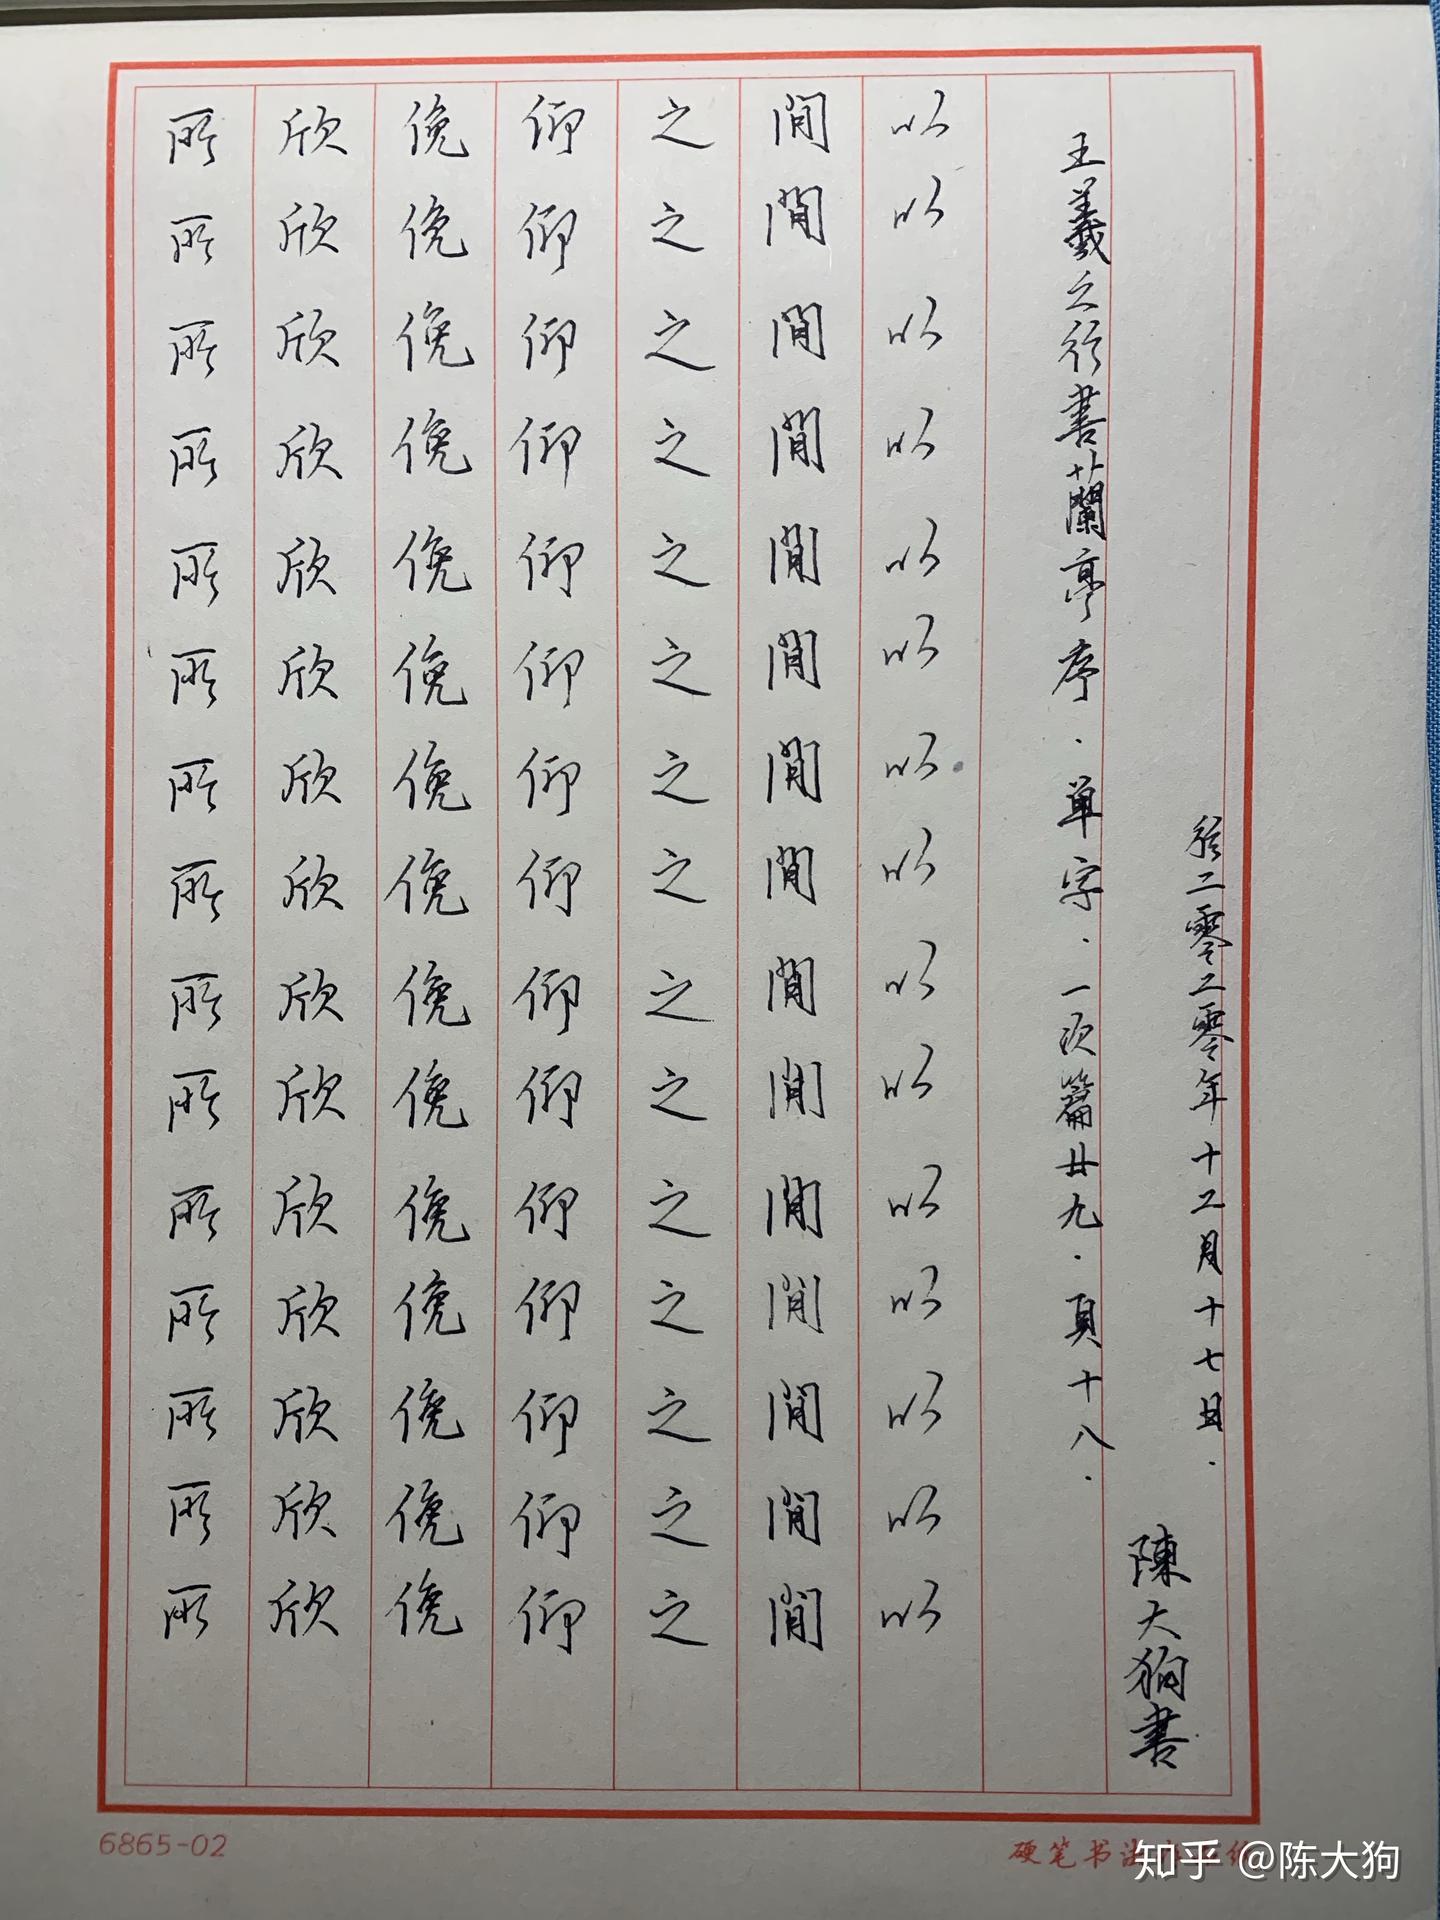 所所所所所所所所所所所所所所所
欣欣欣欣欣欣欣欣欣欣欣欣欣欣欣
俛俛俛俛俛俛俛俛俛俛俛俛俛俛俛
仰仰仰仰仰仰仰仰仰仰仰仰仰仰仰
之之之之之之之之之之之之之之之
間間間間間間間間間間間間間間間
以以以以以以以以以以以以以以以
王羲之行書蘭亭序.单字.一次篇廿九.頁十八.
於二零二零年十二月十七日.
陳大狗書
6865-02
硬笔书法
知乎 @陈大狗